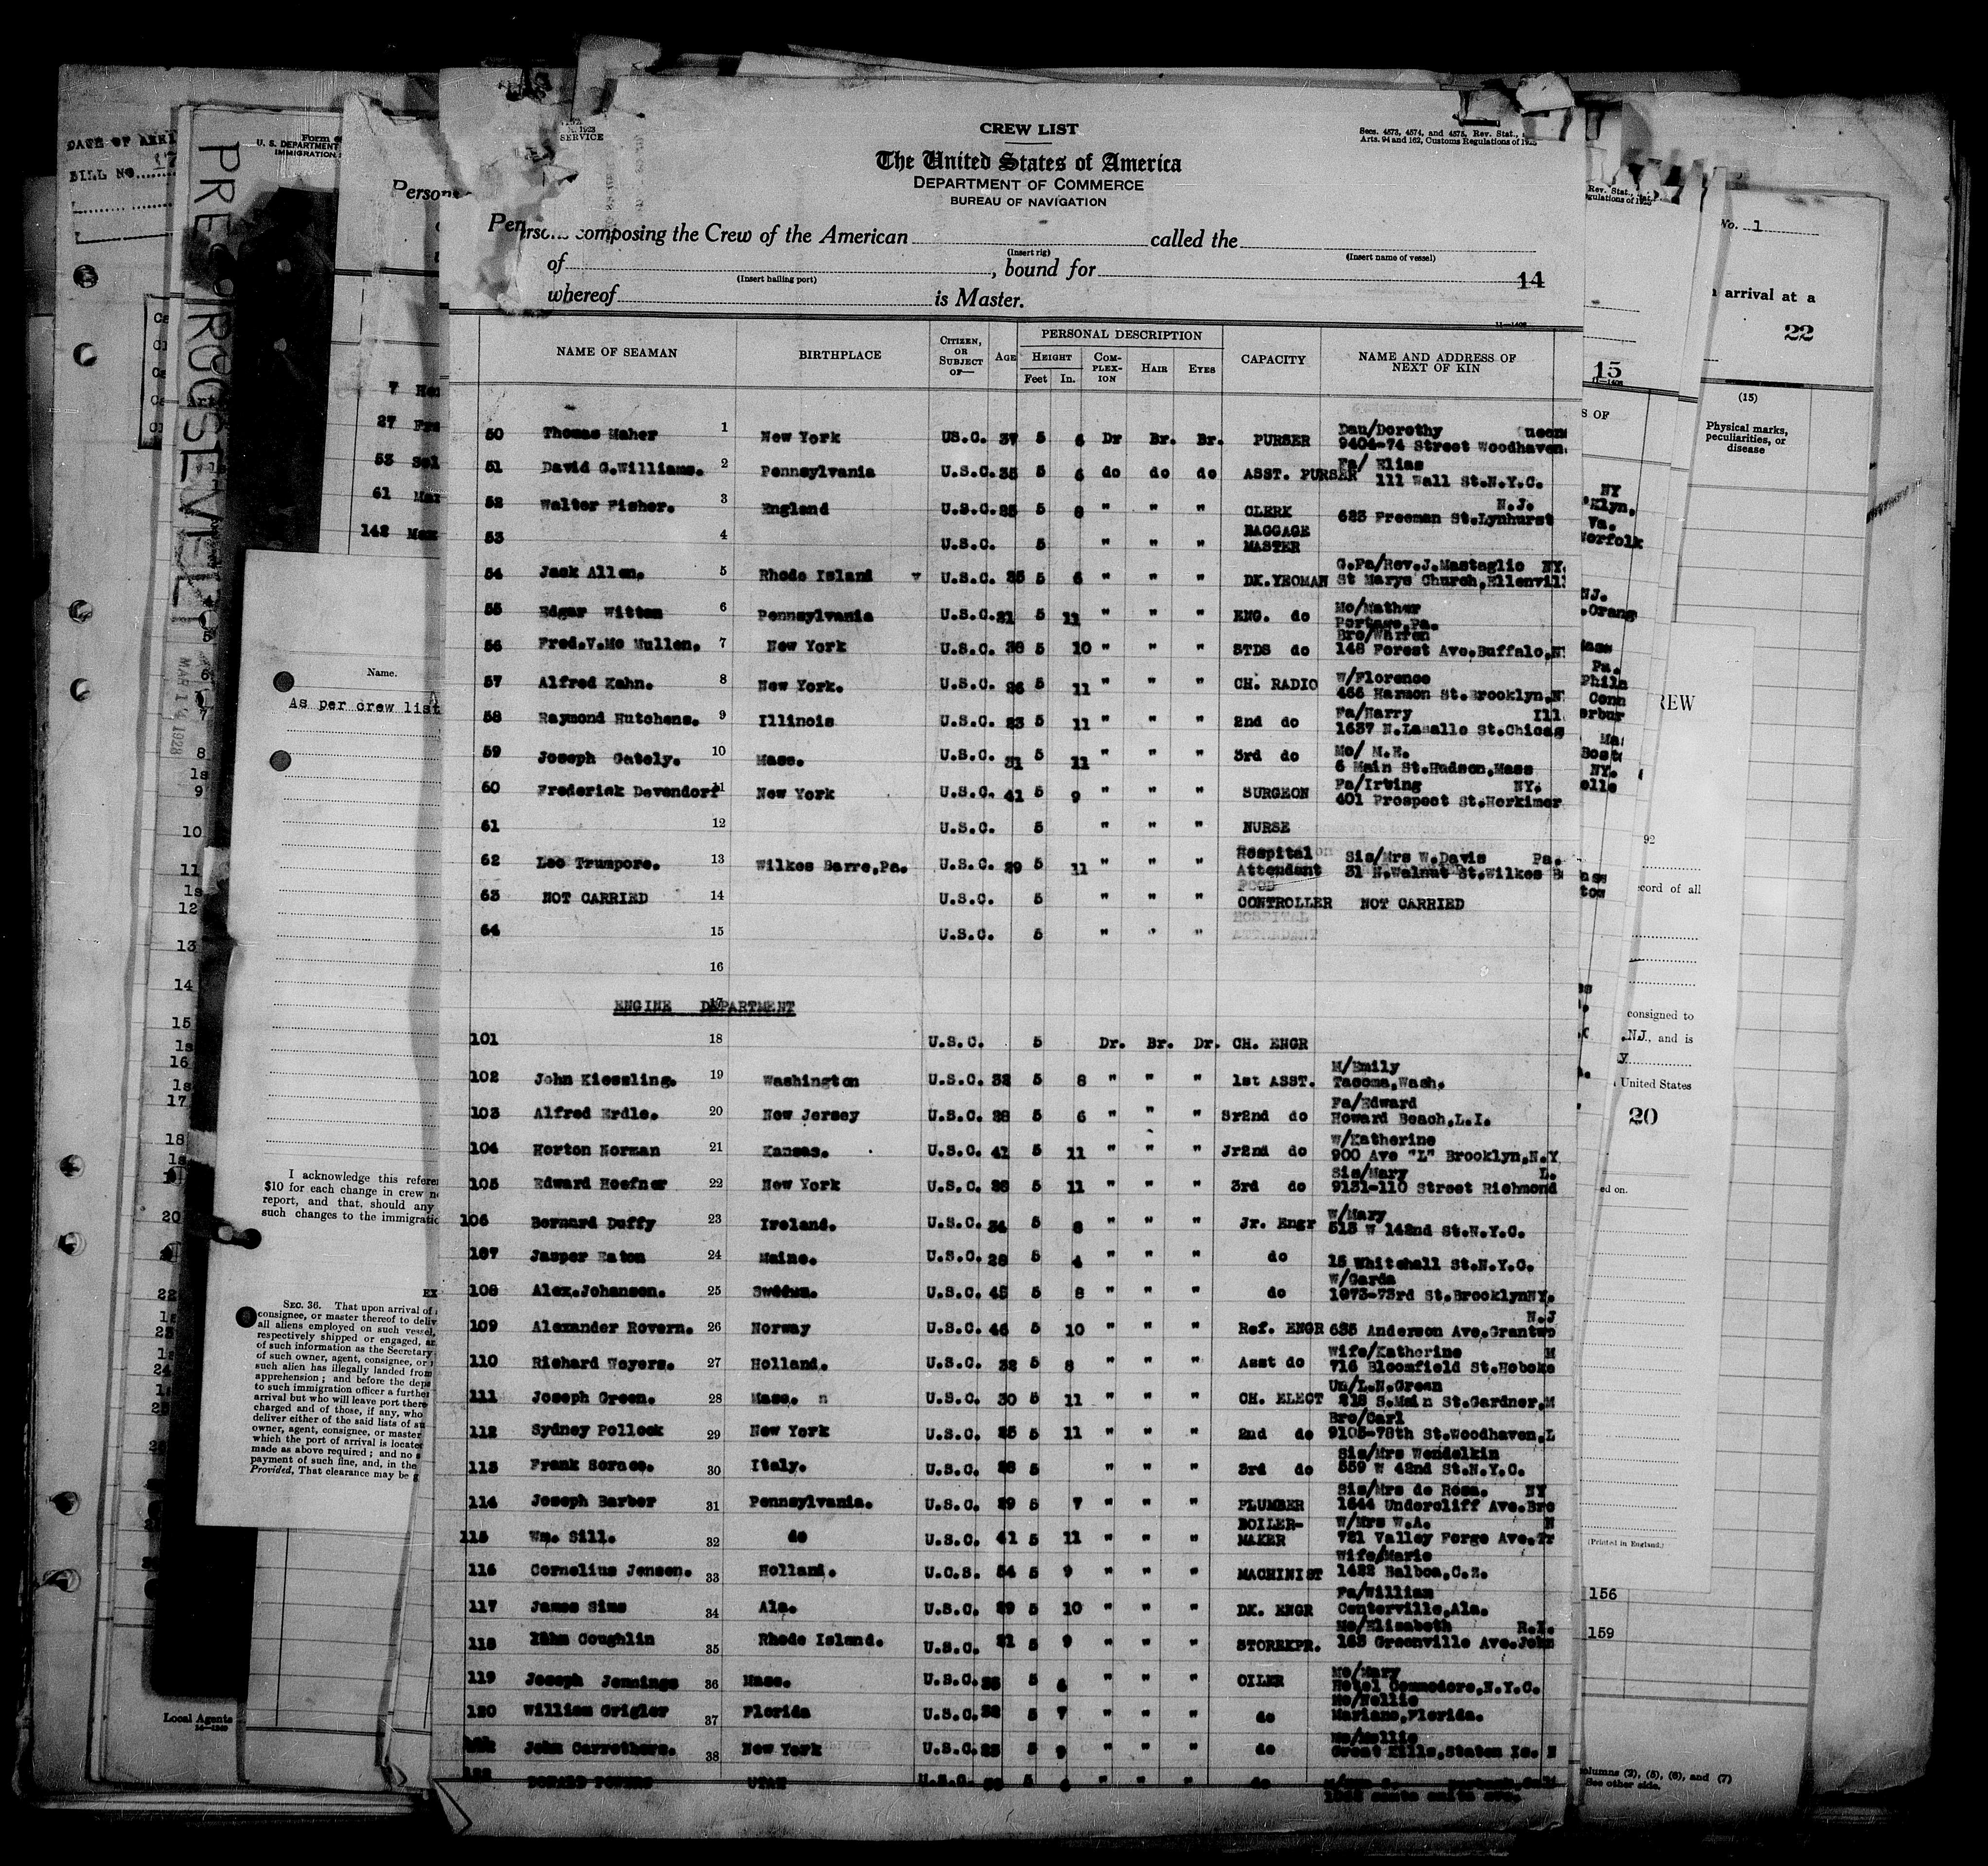 CREW LIST
Secs. 4573, 4574, and 4575, Rev. Stat.,
Arts. 94 and 162, Customs Regulations of 1923
1923
SERVICE
The United States of America
DEPARTMENT OF COMMERCE
BUREAU OF NAVIGATION
Persons composing the Crew of the American called the
(Insert rig) (Insert name of vessel)
of , bound for 14
(Insert hailing port)
whereof is Master.
11-1408
NAME OF SEAMAN BIRTHPLACE CITIZEN, OR SUBJECT OF— AGE PERSONAL DESCRIPTION HEIGHT Feet In. COMPLEXION HAIR EYES CAPACITY NAME AND ADDRESS OF NEXT OF KIN
50 Thomas Maher 1 New York US.C. 37 5 6 Dr Br. Br. PURSER Dau/Dorothy Queens
9404-74 Street Woodhaven
51 David G.Williams. 2 Pennsylvania U.S.C. 35 5 6 do do do ASST. PURSER Fa/ Elias
111 Wall St.N.Y.C.
52 Walter Fisher. 3 England U.S.C. 5 8 " " " CLERK N.J.
623 Freeman St.Lynhurst
53 4 U.S.C. 5 " " " BAGGAGE MASTER
54 Jack Allen. 5 Rhode Island U.S.C. 5 6 " " " DK.YEOMAN G.Pa/Rev.J.Mastaglio NY
St Marys Church,Ellenvil
55 Edgar Witten 6 Pennsylvania U.S.C. 21 5 11 " " " ENG. do Mo/Mather
Portage,Pa.
56 Fred.V.Mc Mullen. 7 New York U.S.C. 5 10 " " " STDS do Bro/Warren
148 Forest Ave.Buffalo,N
57 Alfred Kahn. 8 New York. U.S.C. 26 5 11 " " " CH. RADIO W/Florence
466 Harmon St.Brooklyn,N
58 Raymond Hutchens. 9 Illinois U.S.C. 23 5 11 " " " 2nd do Fa/Harry Ill
1637 N.Lasalle St.Chicag
59 Joseph Gately. 10 Mass. U.S.C. 31 5 11 " " " 3rd do Mo/ M.E.
6 Main St.Hudson,Mass
60 Frederick Devendorf 11 New York U.S.C. 41 5 9 " " " SURGEON Fa/Irving NY.
401 Prospect St.Herkimer
61 12 U.S.C. 5 " " " NURSE
62 Leo Trumpore. 13 Wilkes Barre,Pa. U.S.C. 29 5 11 " " " Hospital Attendant Sis/Mrs W.Davis Pa.
31 N.Walnut St.Wilkes B
63 NOT CARRIED 14 U.S.C. 5 " " " FOOD CONTROLLER NOT CARRIED
64 15 U.S.C. 5 " " " HOSPITAL ATTENDANT
16
ENGINE DEPARTMENT 17
101 18 U.S.C. 5 Dr. Br. Dr. CH. ENGR
102 John Kiessling. 19 Washington U.S.C. 32 5 8 " " " 1st ASST. M/Emily
Tacoma,Wash.
103 Alfred Erdle. 20 New Jersey U.S.C. 5 6 " " " Sr2nd do Fa/Edward
Howard Beach,L.I.
104 Horton Norman 21 Kansas. U.S.C. 41 5 11 " " " Jr2nd do W/Katherine
900 Ave "L" Brooklyn,N.Y
105 Edward Hoefner 22 New York U.S.C. 5 11 " " " 3rd do Sis/Mary L.
9131-110 Street Richmond
106 Bernard Duffy 23 Ireland. U.S.C. 34 5 8 " " " Jr. Engr W/Mary
513 W 142nd St.N.Y.C.
107 Jasper Eaton 24 Maine. U.S.C. 28 5 4 " " " do 15 Whitehall St.N.Y.C.
108 Alex.Johanson. 25 Sweden. U.S.C. 45 5 8 " " " do W/Garda
1073-73rd St.BrooklynNY.
109 Alexander Rovern. 26 Norway U.S.C. 46 5 10 " " " Ref. ENGR N.J
635 Anderson Ave.Grantwo
110 Richard Weyers. 27 Holland. U.S.C. 32 5 8 " " " Asst do Wife/Katherine
716 Bloomfield St.Hoboke
111 Joseph Green. 28 Mass. U.S.C. 30 5 11 " " " CH. ELECT Un/L.N.Green
218 S.Main St.Gardner,M
112 Sydney Pollock 29 New York U.S.C. 25 5 11 " " " 2nd do Bro/Carl
9105-78th St.Woodhaven,L
113 Frank Sorace. 30 Italy. U.S.C. 5 " " " 3rd do Sis/Mrs Wendelkin
559 W 42nd St.N.Y.C.
114 Joseph Barber 31 Pennsylvania. U.S.C. 29 5 7 " " " PLUMBER Sis/Mrs de Rosa. NY
1644 Undercliff Ave.Bro
115 Wm. Sill. 32 do U.S.C. 41 5 11 " " " BOILER-MAKER W/Mrs W.A.
721 Valley Forge Ave.Tr
116 Cornelius Jensen. 33 Holland. U.C.S. 54 5 9 " " " MACHINIST Wife/Marie
1422 Balboa,C.Z.
117 James Sims 34 Ala. U.S.C. 29 5 10 " " " DK. ENGR Fa/William
Centerville,Ala.
118 Coughlin 35 Rhode Island. U.S.C. 21 5 9 " " " STOREKPR. Mo/Elizabeth R.I.
Greenville Ave.John
119 Joseph Jennings 36 Mass. U.S.C. 5 6 " " " OILER Mo/Mary
Hotel Commodore,N.Y.C.
120 William Grigler 37 Florida U.S.C. 5 7 " " " do Mo/Nellie
Mariano,Florida.
John Carrothers. 38 New York U.S.C. 5 9 " " " do Mo/Mollie
Great Kills,Staten Is. N
122 DONALD POWERS UTAH U.S.C. 5 " " " do
DATE OF ARRI
BILL NO.
PRES ROOSEVELT
MAR 14 1928
U. S. DEPARTMENT
IMMIGRATION
Person
7
27
53
61
142
Name.
As per crew list
I acknowledge this refere
$10 for each change in crew n
report, and that, should any
such changes to the immigratio
EX
SEC. 36. That upon arrival of
consignee, or master thereof to deliv
all aliens employed on such vessel,
respectively shipped or engaged, an
of such information as the Secretary
of such owner, agent, consignee, or
such alien has illegally landed from
apprehension; and before the depa
to such immigration officer a further
arrival but who will leave port there
charged and of those, if any, who
deliver either of the said lists of su
owner, agent, consignee, or master
which the port of arrival is locate
made as above required; and no s
payment of such fine, and, in the
Provided, That clearance may be g
Local Agents
No. 1
arrival at a
22
15
(15)
Physical marks,
peculiarities, or
disease
REW
92
ecord of all
consigned to
N.J., and is
United States
20
ed on.
(Printed in England.)
156
159
columns (2), (5), (6), and (7)
See other side.